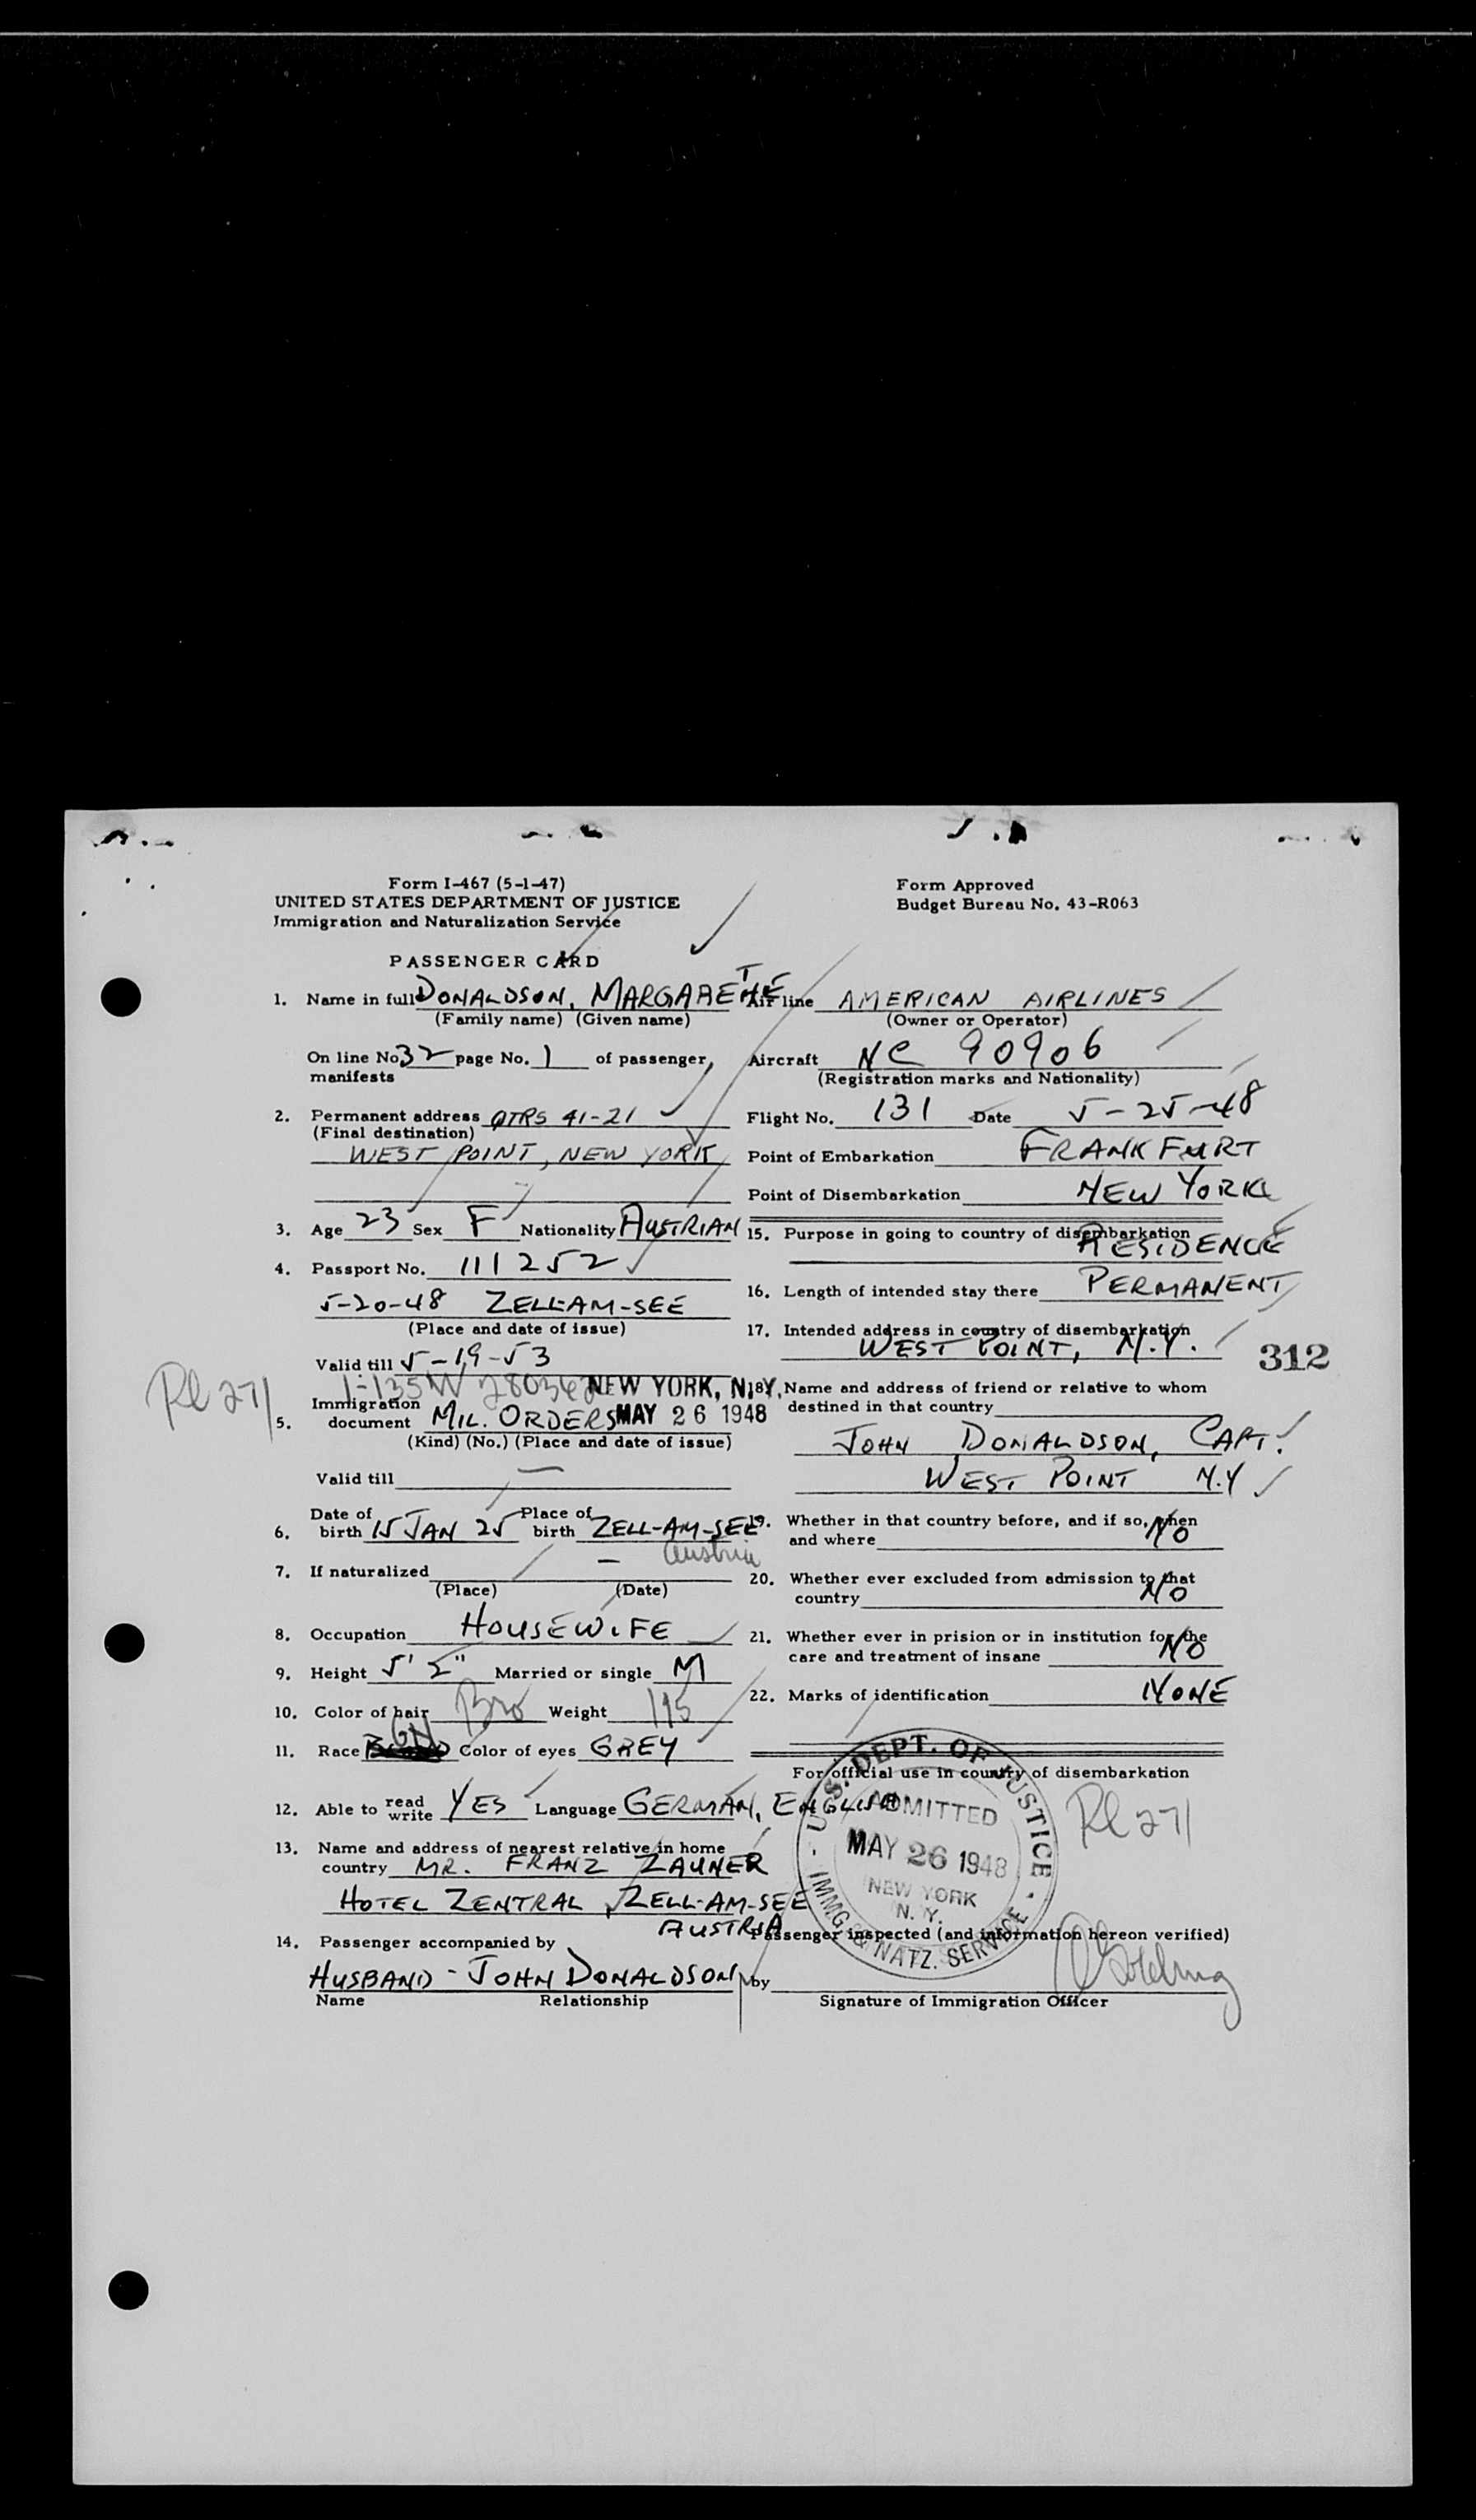 Form I-467 (5-1-47)
UNITED STATES DEPARTMENT OF JUSTICE
Immigration and Naturalization Service
Form Approved
Budget Bureau No. 43-R063
PASSENGER CARD
1. Name in full DONALDSON, MARGARETHE
(Family name) (Given name)
On line No. 32 page No. 1 of passenger
manifests
2. Permanent address QTRS 41-21
(Final destination)
WEST POINT, NEW YORK
3. Age 23 Sex F Nationality AUSTRIAN
4. Passport No. 111252
5-20-48 ZELL-AM-SEE
(Place and date of issue)
Valid till 5-19-53
Rl 271
I-135W
NEW YORK, N.Y.
5. Immigration
document MIL. ORDERS MAY 26 1948
(Kind) (No.) (Place and date of issue)
Valid till —
6. Date of birth 15 JAN 25 Place of birth ZELL-AM-SEE
Austria
7. If naturalized —
(Place) (Date)
8. Occupation HOUSEWIFE
9. Height 5' Married or single M
10. Color of hair Bro Weight 115
11. Race Color of eyes GREY
12. Able to read write YES Language GERMAN, ENGLISH
13. Name and address of nearest relative in home
country MR. FRANZ ZAUNER
HOTEL ZENTRAL, ZELL-AM-SEE
AUSTRIA
14. Passenger accompanied by
HUSBAND - JOHN DONALDSON
Name Relationship
Air line AMERICAN AIRLINES
(Owner or Operator)
Aircraft NC 90906
(Registration marks and Nationality)
Flight No. 131 Date 5-25-48
Point of Embarkation FRANKFURT
Point of Disembarkation NEW YORK
15. Purpose in going to country of disembarkation
RESIDENCE
16. Length of intended stay there PERMANENT
17. Intended address in country of disembarkation
WEST POINT, N.Y.
312
18. Name and address of friend or relative to whom
destined in that country
JOHN DONALDSON, CAPT.
WEST POINT N.Y
19. Whether in that country before, and if so, when
and where NO
20. Whether ever excluded from admission to that
country NO
21. Whether ever in prision or in institution for the
care and treatment of insane NO
22. Marks of identification NONE
For official use in country of disembarkation
U.S. DEPT. OF JUSTICE
ADMITTED
MAY 26 1948
NEW YORK
N. Y.
IMMG. & NATZ. SERVICE
Rl 271
Passenger inspected (and information hereon verified)
by
Signature of Immigration Officer